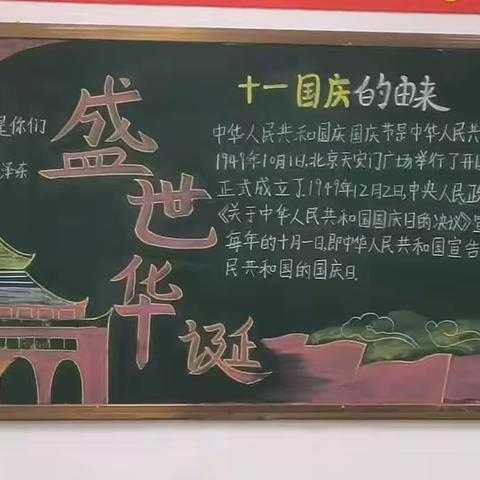 是你们
泽东
盛世华诞
十一国庆的由来
中华人民共和国国庆国庆节是中华人民共
1949年10月1日,北京天安门广场举行了开
正式成立了,1949年12月2日,中央人民政
《关于中华人民共和国国庆日的决议》
每年的十月一日,即中华人民共和国宣告
民共和国的国庆日.